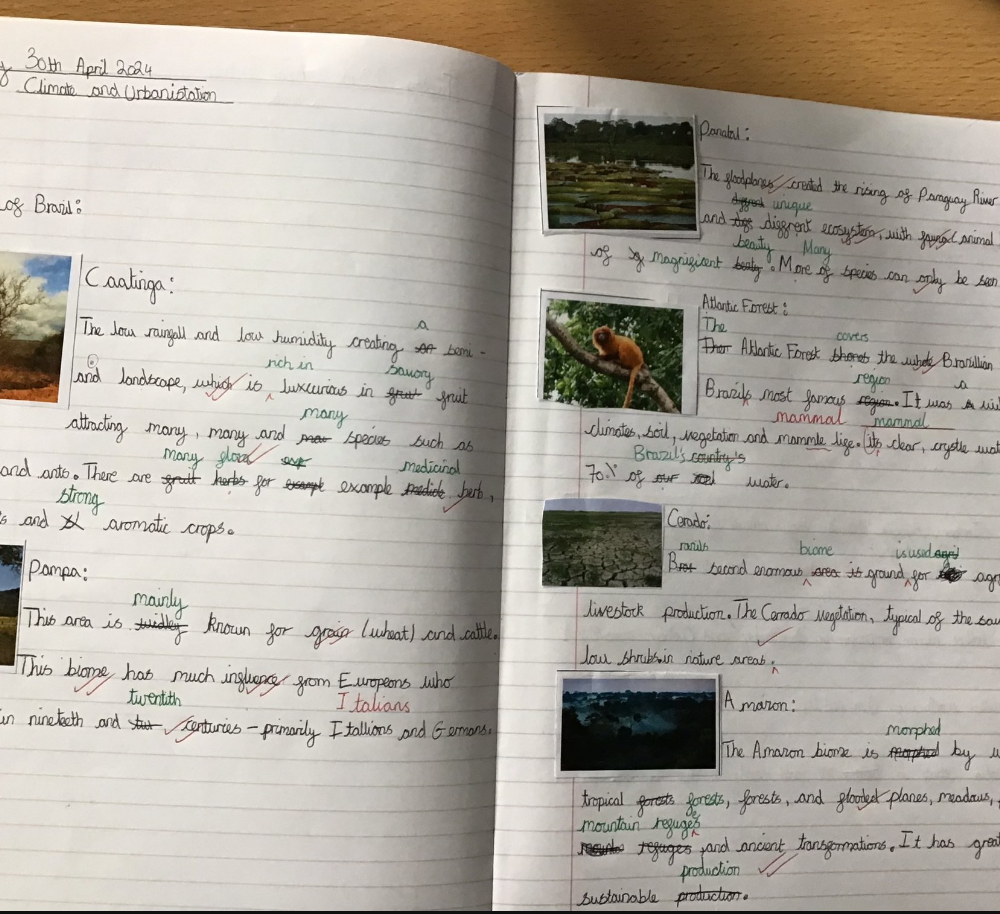 30th April 2024
Climate and Urbanistation
of Brazil:
Caatinga:
a
The low rainfall and low humidity creating an semi-
rich in savory
and landscape, which is luxcurious in fruit
many
attracting many, many and species such as
many flora medicinal
and ants. There are herbs for example herb,
strong
and aromatic crops.
Pampa:
mainly
This area is widley known for (wheat) and cattle.
This biome has much influence from Europeons who
twentith Italians
in nineteeth and centuries - primarily Itallions and Gemans.
Panatal:
The floodplanes created the rising of Paraguay River
unique
and diffrent ecosystem, with animal
beauty Many
of magnificent beaty. More of species can only be seen
Atlantic Forest:
The covers
Atlantic Forest the whole Brazillian
region a
Brazils most famous region. It was
mammal mammal
climates, soil, vegetation and mammle lige. its clear, crystle
Brazil's country's
70% of our water.
Cerado:
razils biome is used
second enormous area it ground for
livestock production. The Cerrado vegetation, typical of the
low shrubs.in nature areas.
Amazon:
morphed
The Amazon biome is morphed by
tropical forests forests, forests, and flooded planes, meadows,
mountain refuges
refuges and ancient transformations. It has
production
sustainable production.